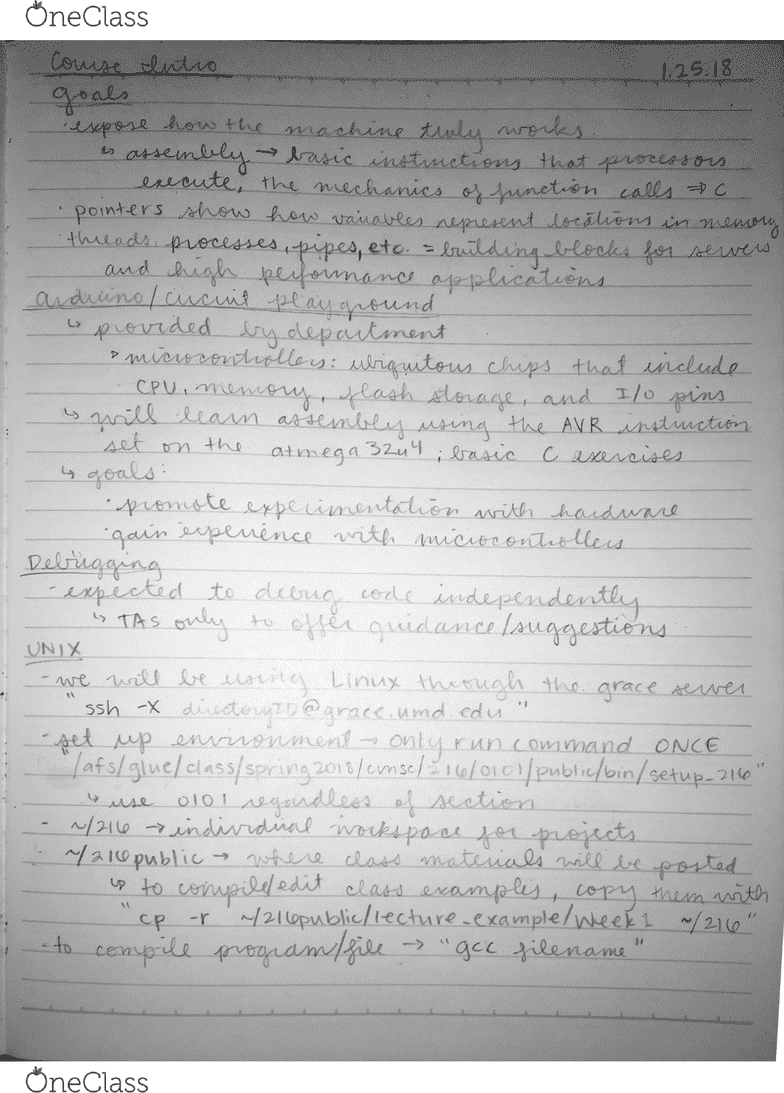 OneClass
Course Intro 1.25.18
goals
· expose how the machine truly works.
↳ assembly → basic instructions that processors
execute, the mechanics of function calls ⇒ C
· pointers show how variables represent locations in memory
threads, processes, pipes, etc. = building blocks for servers
and high performance applications
arduino/circuit playground
↳ provided by department
▹ microcontrollers: ubiquitous chips that include
CPU, memory, flash storage, and I/O pins
↳ will learn assembly using the AVR instruction
set on the atmega32u4; basic C exercises
↳ goals:
· promote experimentation with hardware
· gain experience with microcontrollers
Debugging
- expected to debug code independently
↳ TAs only to offer guidance/suggestions
UNIX
- we will be using Linux through the grace server
"ssh -X directoryID@grace.umd.edu"
- set up environment → only run command ONCE
"/afs/glue/class/spring2018/cmsc/216/0101/public/bin/setup_216"
↳ use 0101 regardless of section
- ~/216 → individual workspace for projects
- ~/216public → where class materials will be posted
↳ to compile/edit class examples, copy them with
"cp -r ~/216public/lecture_example/Week1 ~/216"
- to compile program/file → "gcc filename"
OneClass